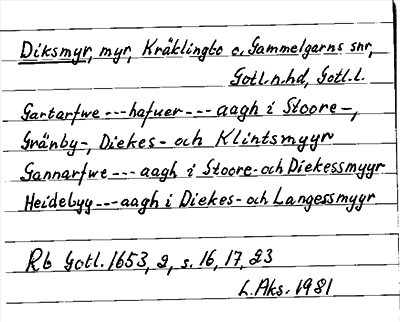 Diksmyr, myr, Kräklingbo o. Gammelgarns snr,
Gotl.n.hd, Gotl.l.
Gartarfwe --- hafuer --- aagh i Stoore-,
Gränby-, Diekes- och Klintsmyyr
Gannarfwe --- aagh i Stoore- och Diekessmyyr
Heidebyy --- aagh i Diekes- och Langessmyyr
Rb Gotl. 1653, 2, s. 16, 17, 23
L.Aks. 1981